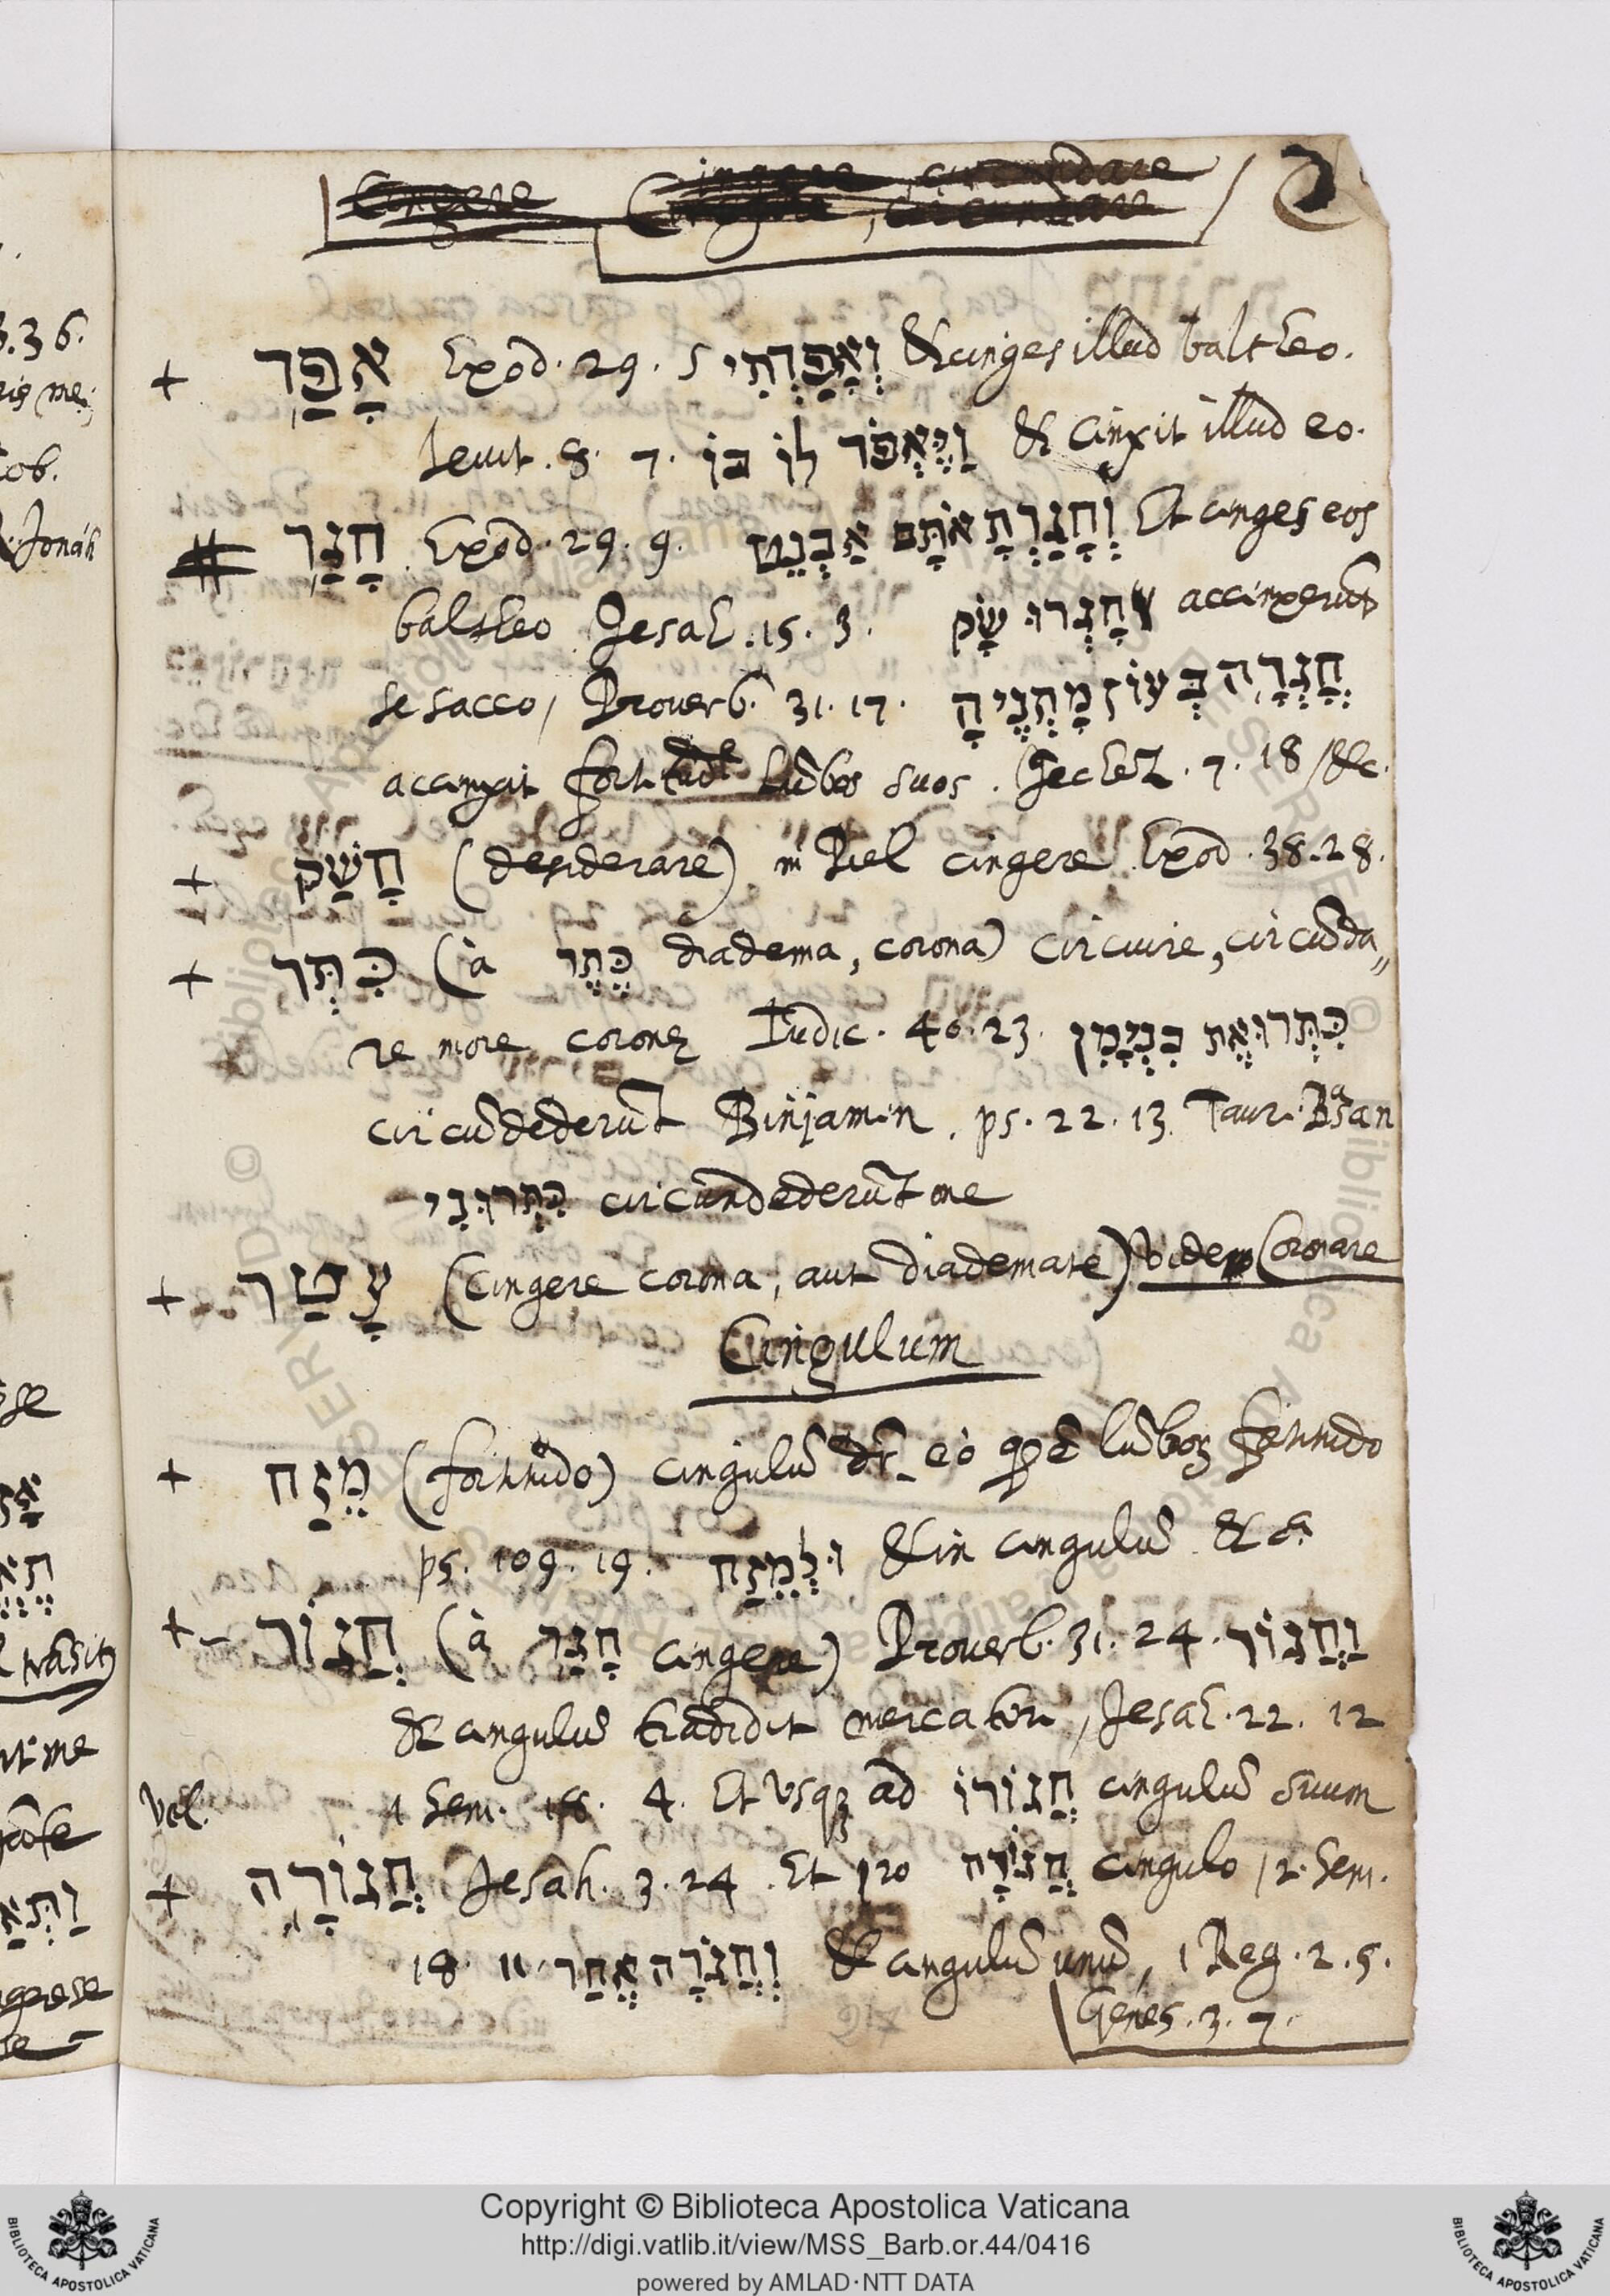 Cingere Cingere, circundare
Cingere, circundare
+ אָפַד Exod. 29. 5 וְאָפַדְתִּי & cinges illud baltheo.
Leuit. 8. 7. וַיֶּאְפֹּד לוֹ בוֹ & cinxit illud eo.
חָגַר Exod. 29. 9. וְחָגַרְתָּ אֹתָם אַבְנֵט Et cinges eos
baltheo Jesah. 15. 3. חָגְרוּ שָׂק accinxerũt
se sacco, Prouerb. 31. 17. חָגְרָה בְּעוֹז מָתְנֶיהָ
accinxit fortitudĩe lũbos suos. Jechez. 7. 18 /&c.
+ חָשַׁק (desiderare) in Piel cingere Exod. 38. 28.
+ כִּתֵּר (à כֶּתֶר diadema, corona) circuire, circũda„
re more coronę Iudic. 40. 23. כִּתְּרוּ אֶת בִּנְיָמִן
circũdederũt Binjamin. ps. 22. 13. Taur. Basan
כִּתְּרוּנִי circundederũt me
+ עָטַר (cingere corona, aut diademate) vide Coronare
Cingulum
+ מֵזַח (fortitudo) cingulũ dr̃ eò
ps. 109. 19. וּלְמֵזַח & in cingulũ &c.
+ - חֲגוֹר (à חָגַר cingere) Prouerb. 31. 24. וַחֲגוֹר
& cingulũ tradidit mercatori, Jesah. 22. 12
vel. 1 Sem. 18. 4. Et vsq; ad חֲגוֹרוֹ cingulũ suum
+ חֲגוֹרָה Jesah. 3. 24. Et pro חֲגוֹרָה cingulo, 2. Sem.
18. 11. וַחֲגֹרָה אֶחַד & cingulũ unũ, 1 Reg. 2. 5.
Genes. 3. 7.
Copyright © Biblioteca Apostolica Vaticana
http://digi.vatlib.it/view/MSS_Barb.or.44/0416
powered by AMLAD·NTT DATA